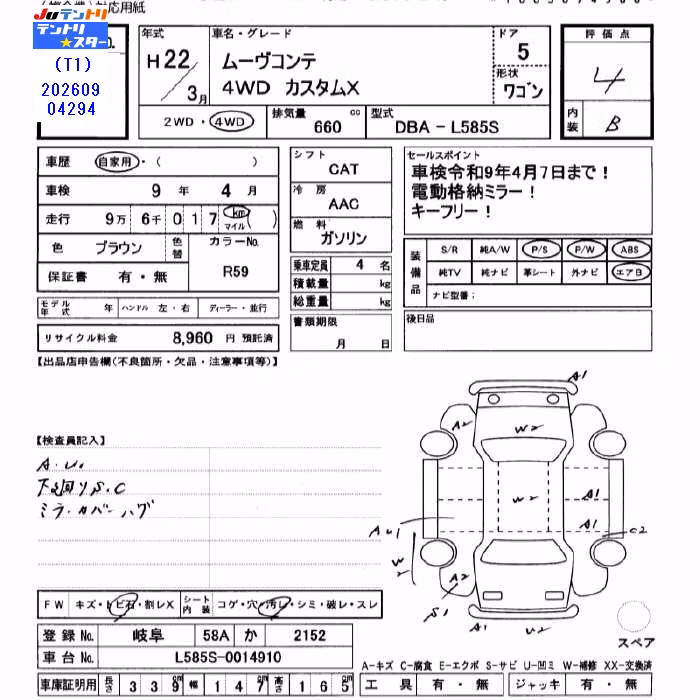 対応用紙
Juテントリ
テントリ
スター
(T1)
202609
04294
年式 H22/3月
車名・グレード ムーヴコンテ
4WD カスタムX
ドア 5
形状 ワゴン
評価点 4
内装 B
2WD・4WD
排気量 660 cc
型式 DBA－L585S
車歴 自家用・( )
車検 9年 4月
走行 9万 6千 0 1 7 km マイル ( )
色 ブラウン 色替 カラーNo. R59
保証書 有・無
モデル年式 年 ハンドル 左・右 ディーラー・並行
リサイクル料金 8,960 円 預託済
シフト CAT
冷房 AAC
燃料 ガソリン
乗車定員 4 名
積載量 kg
総重量 kg
書類期限
月 日
セールスポイント
車検令和9年4月7日まで！
電動格納ミラー！
キーフリー！
装備品 S/R 純A/W P/S P/W ABS
純TV 純ナビ 革シート 外ナビ エアB
ナビ型番：
後日品
【出品店申告欄(不良箇所・欠品・注意事項等)】
【検査員記入】
A・U.
下廻りS.C
ミラーカバーハゲ
A1
A2 W2
W2 A1
AU1 A1 C2
W2
A2
S1
A1 U2
スペア
FW キズ・トビ石・割レX シート内装 コゲ・穴・汚レ・シミ・破レ・スレ
登録No. 岐阜 58A か 2152
車台No. L585S-0014910
A-キズ C-腐食 E-エクボ S-サビ U-凹ミ W-補修 XX-交換済
車庫証明用 長さ 3 3 9 cm 幅 1 4 7 cm 高さ 1 6 5 cm
工具 有・無 ジャッキ 有・無